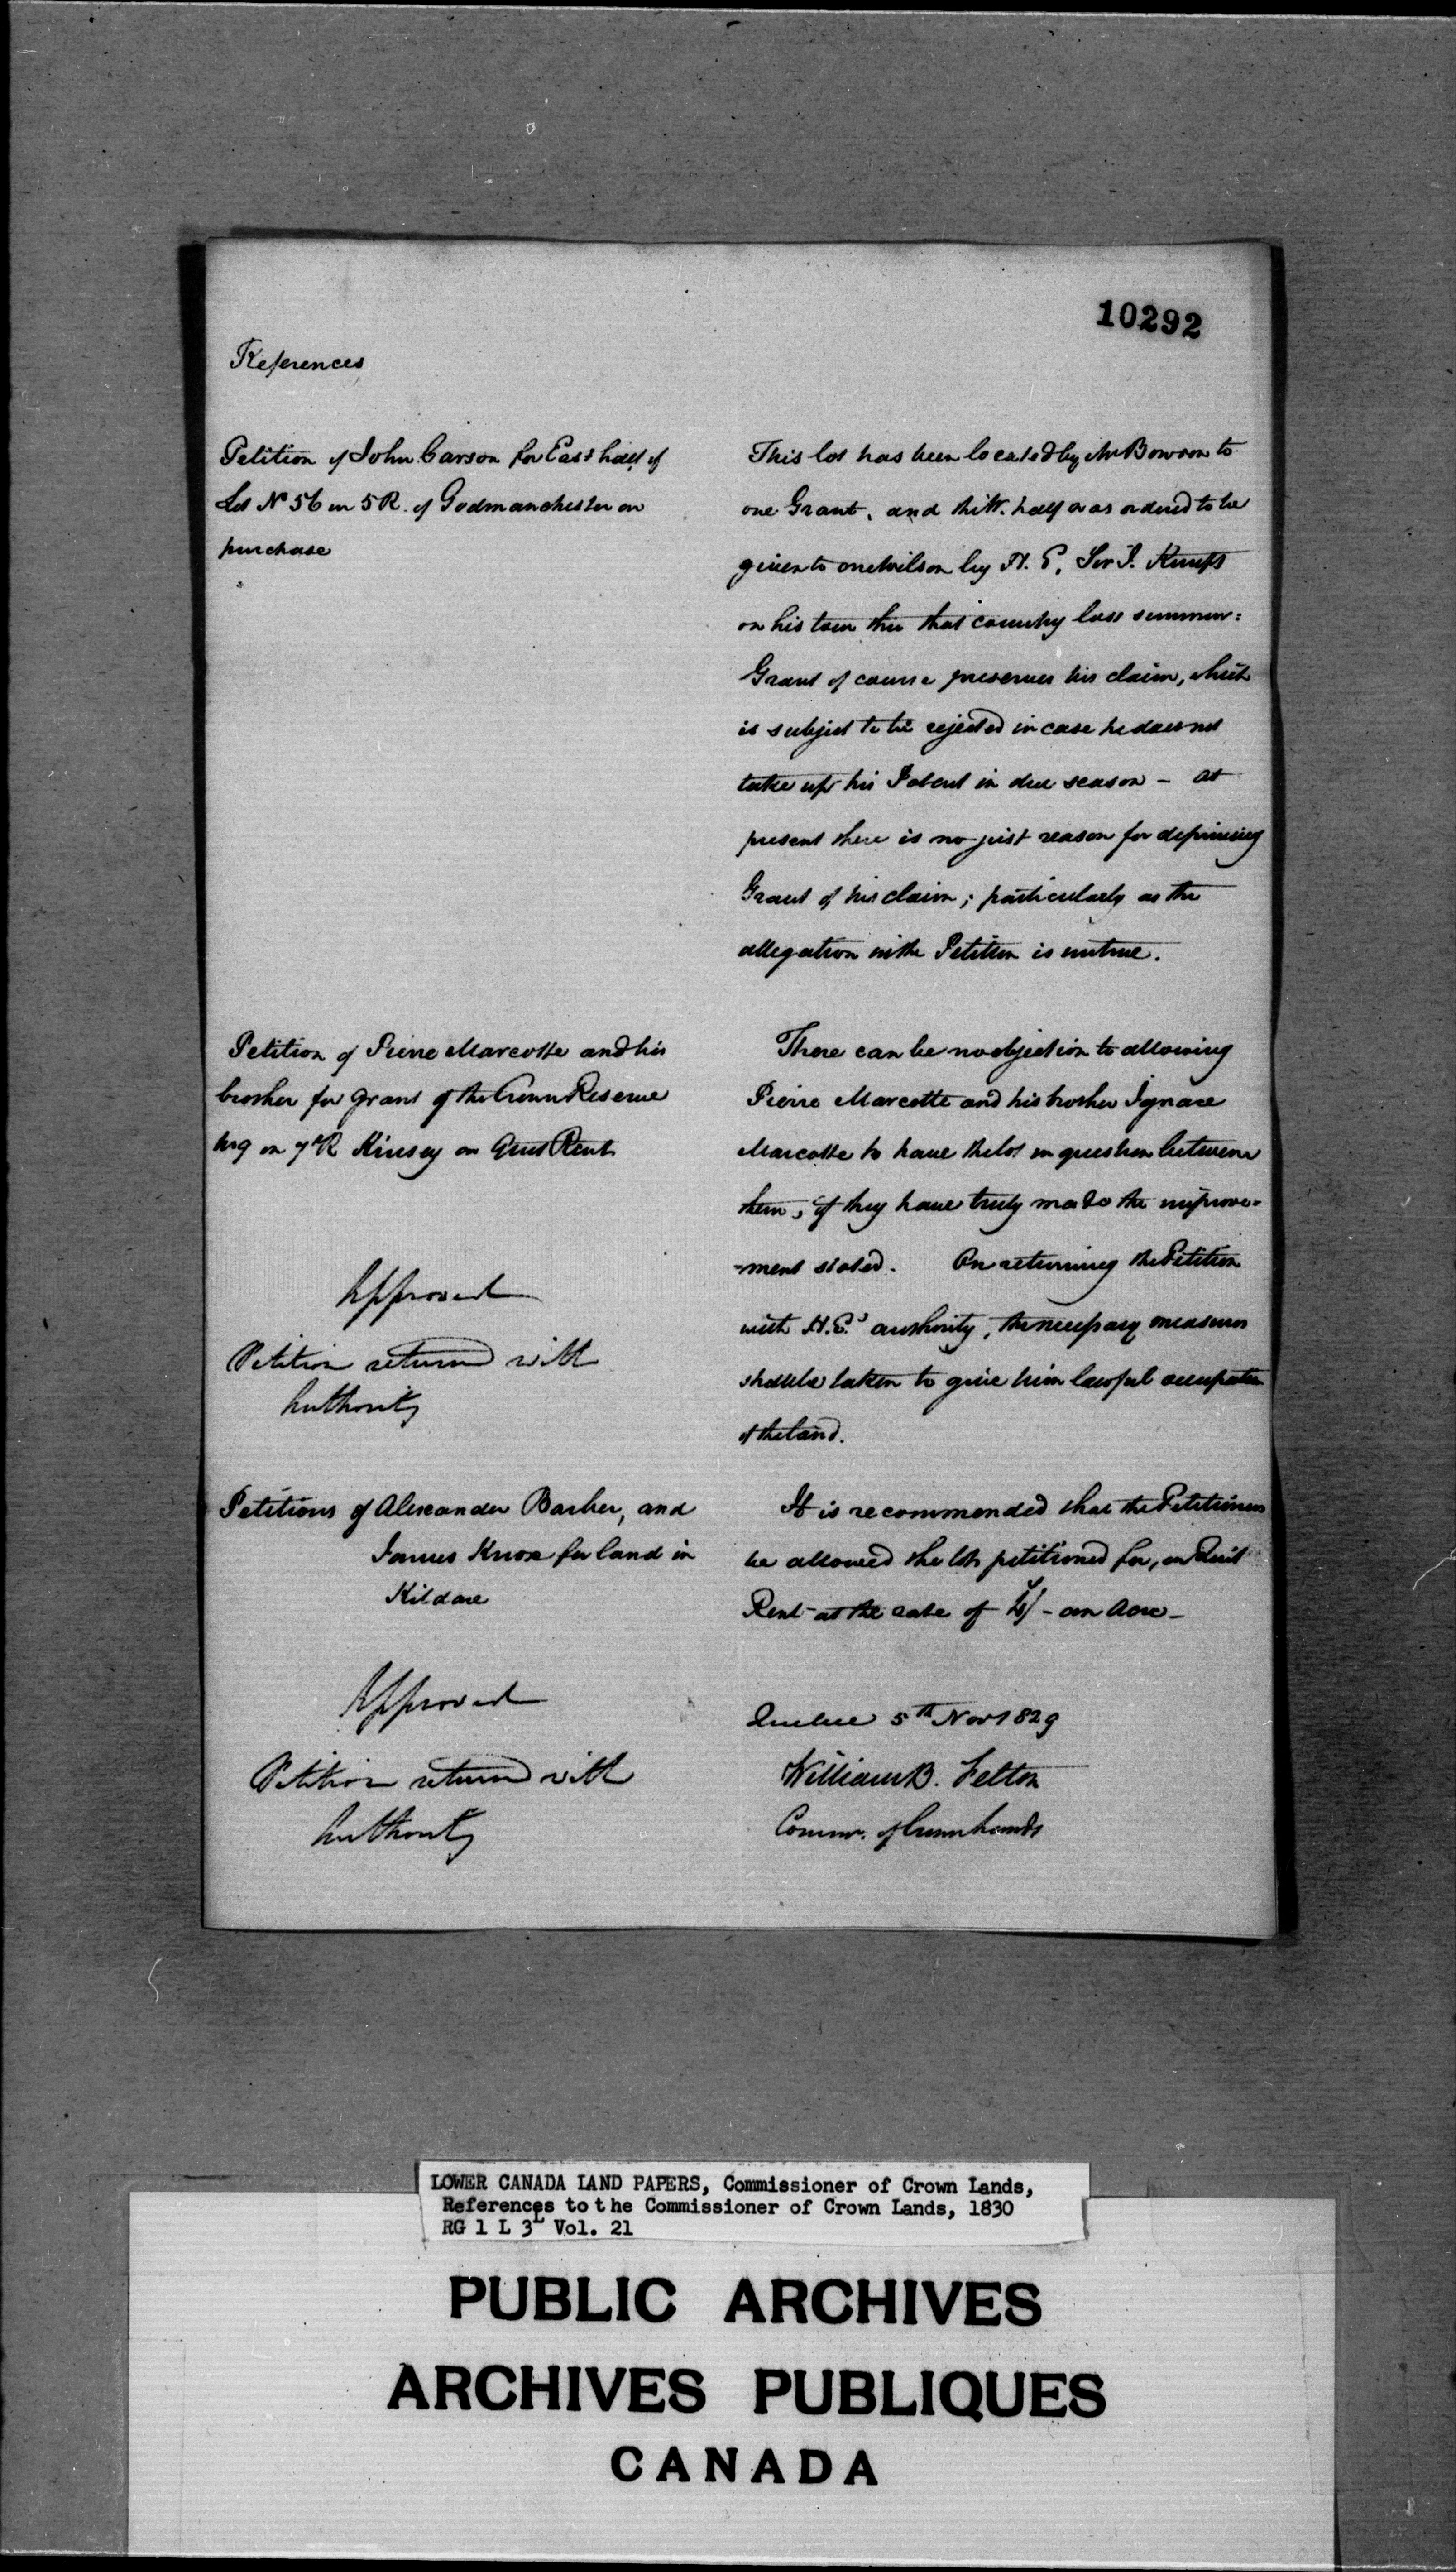 10292
References
Petition of John Carson for East half of
Lot No 56 in 5 R. of Godmanchester on
purchase
This lot has been located by Mr Bowron to
one Grant, and the W. half was ordered to be
given to one Wilson by H. E. Sir J. Kempt
on his tour thro that country last summer:
Grant of course preserves his claim, which
is subject to be rejected in case he does not
take up his Patent in due season - at
present there is no just reason for depriving
Grant of his claim; particularly as the
allegation in the Petition is untrue.
Petition of Pierre Marcotte and his
brother for grant of the Crown Reserve
No 9 in 7 R Kinsey on Quit Rent
Approved
Petition returned with
Authority
There can be no objection to allowing
Pierre Marcotte and his brother Ignace
Marcotte to have the lot in question between
them, if they have truly made the improve-
-ment stated. On returning the Petition
with H.E.'s authority, the necessary measures
shall be taken to give him lawful occupation
of the land.
Petitions of Alexander Barber, and
James Knox for land in
Kildare
Approved
Petition returned with
Authority
It is recommended that the Petitioners
be allowed the lots petitioned for, on Quit
Rent at the rate of 4/- an Acre -
Quebec 5th Nov 1829
William B. Felton
Commr. of Crown Lands
LOWER CANADA LAND PAPERS, Commissioner of Crown Lands,
References to the Commissioner of Crown Lands, 1830
RG 1 L 3L Vol. 21
PUBLIC ARCHIVES
ARCHIVES PUBLIQUES
CANADA